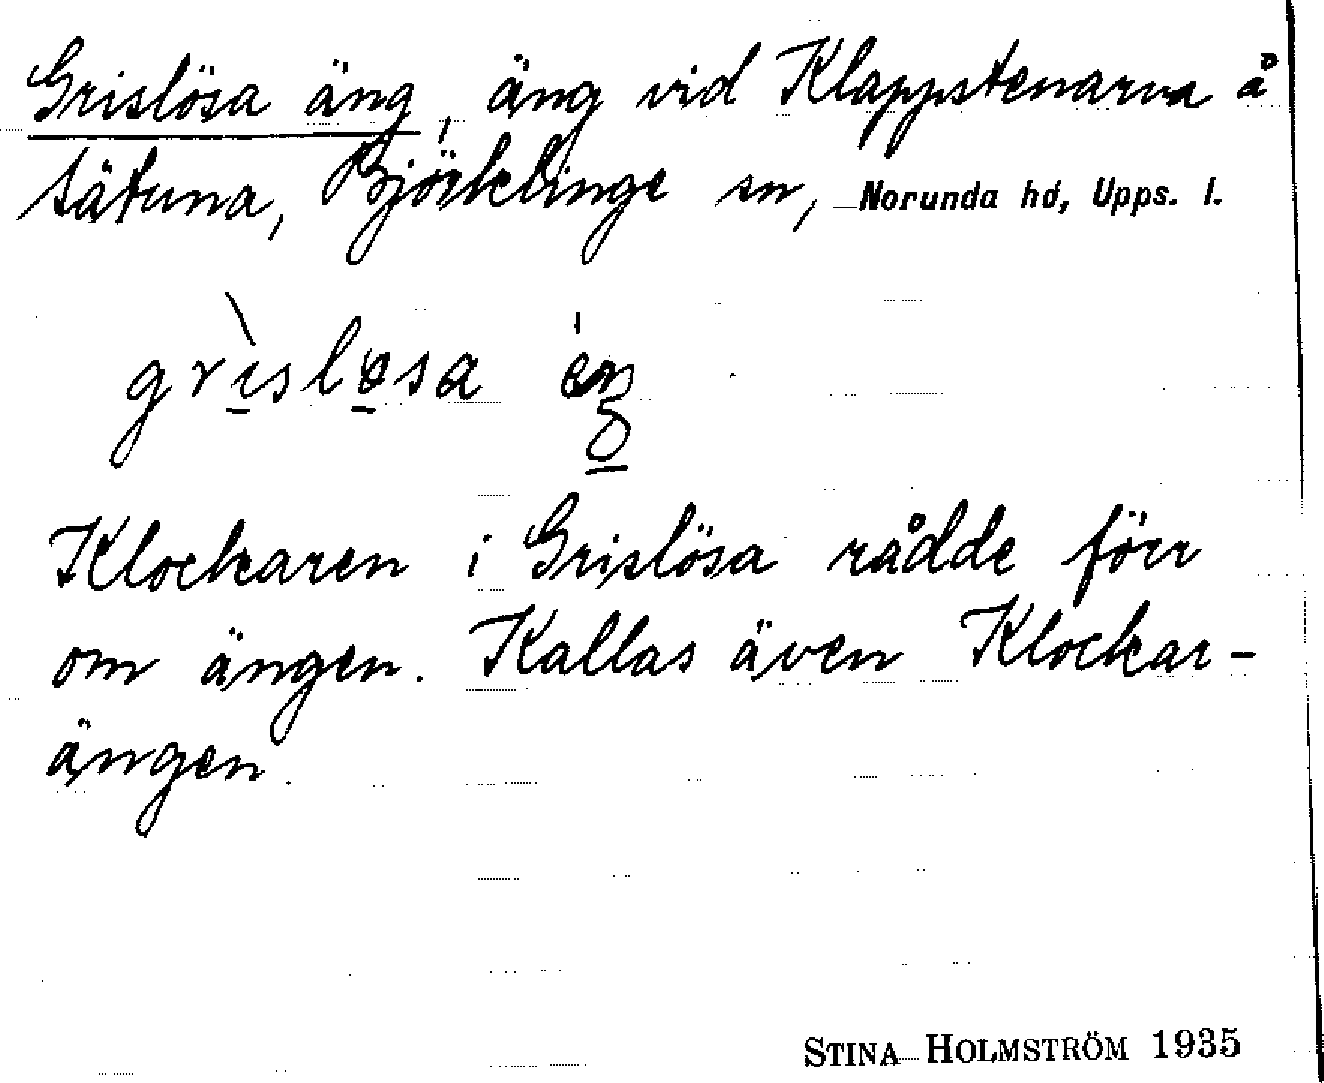 Grislösa äng, äng vid Klappstenarna å
Sätuna, Björklinge sn, Norunda hd, Upps. l.
grìslɵsa ɛ́ŋ
Klockaren i Grislösa rådde förr
om ängen. Kallas även Klockar-
ängen.
STINA HOLMSTRÖM 1935